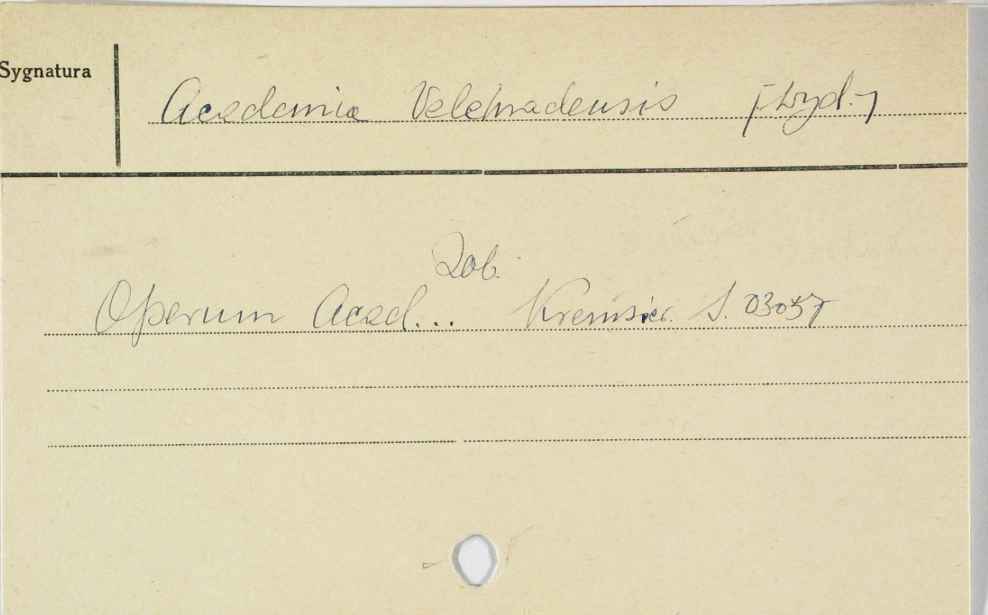 Sygnatura
Academia Velehradensis [wyd.]
Zob.
Operum Acad... Kremsier. S. 03057